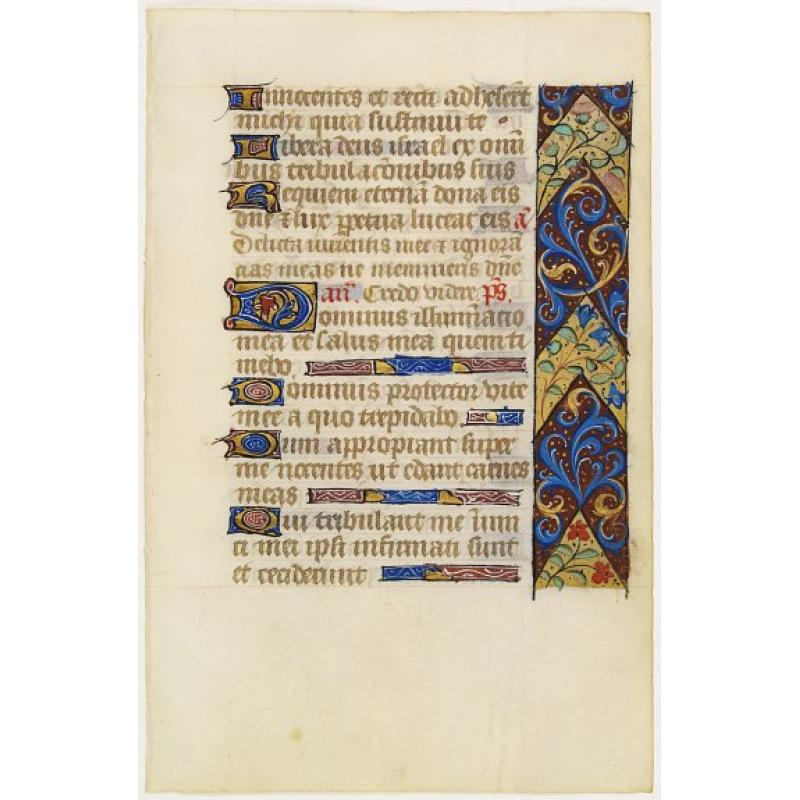 Innocentes et recti adheserūt
michi quia sustinui te
Libera deus israel ex omīī
bus tribulacōnibus suis
Requiem eternā dona eis
dnē & lux ꝑpetua luceat eis ā
Delicta iuuentis mee & ignorā
cias meas ne memineris dn̄e
añ. Credo videre p̄s.
Dominus illumiācio
mea et salus mea quem ti
mebo.
Dominus protector vite
mee a quo trepidabo.
Dum appropiant super
me nocentes ut edant carnes
meas
Qui tribulant me inim
ci mei ipsi infirmati sunt
et ceciderunt